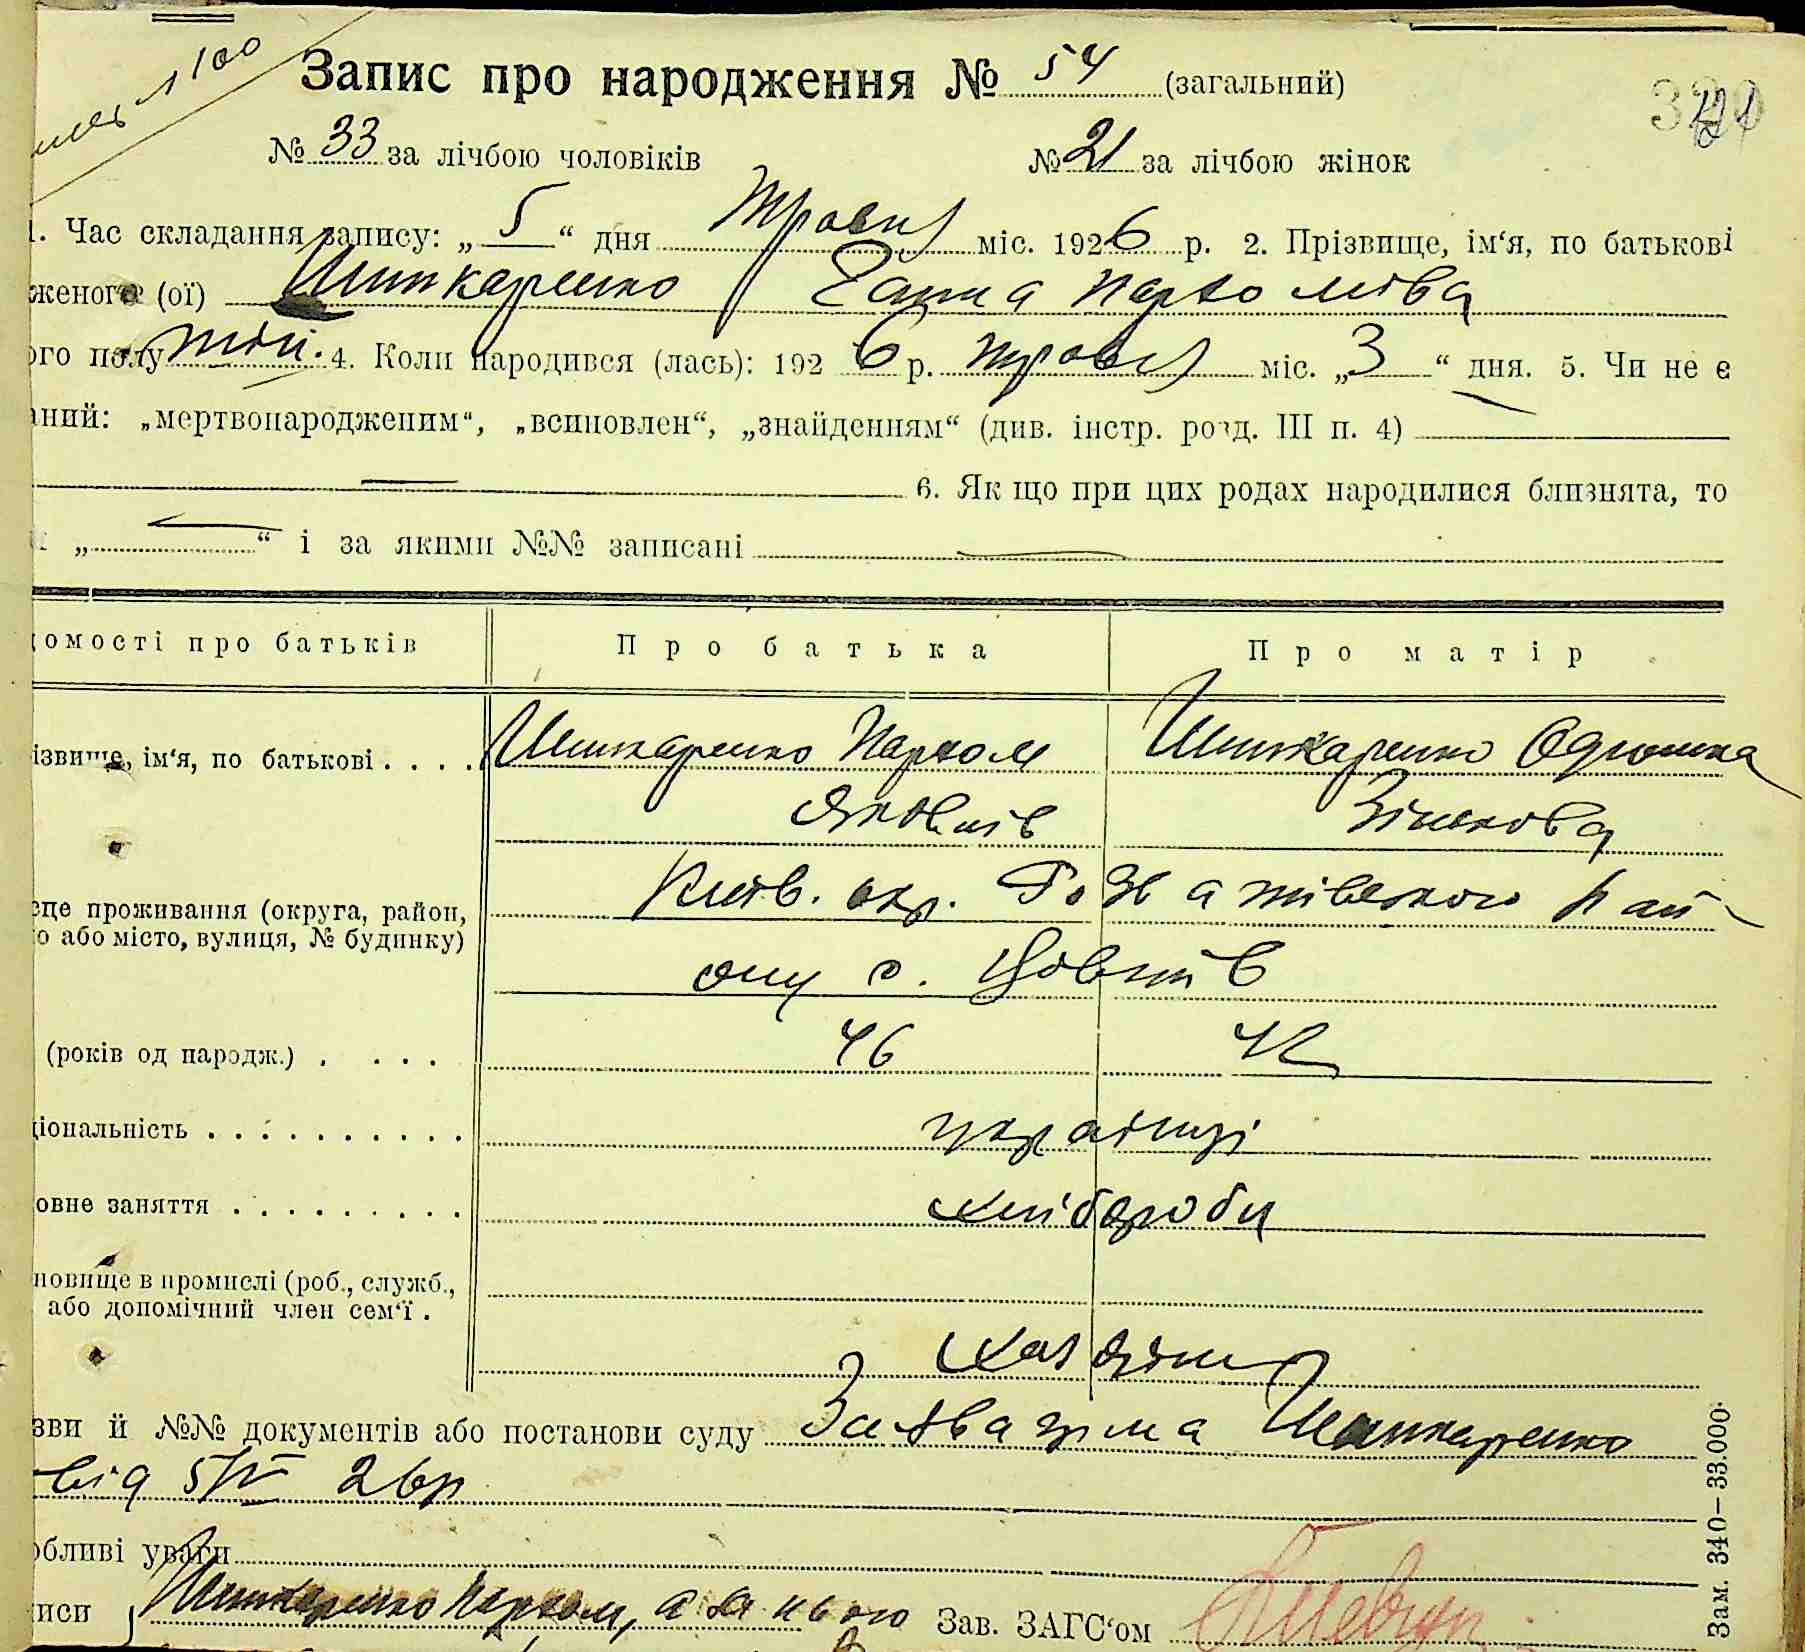 100
Запис про народження № 54 (загальний)
№ 33 за лічбою чоловіків № 21 за лічбою жінок
1. Час складання запису: „5“ дня Травня міс. 1926 р. 2. Прізвище, ім‘я, по батькові
женого (ої) Шинкаренко Ганна Пархомова
ого полу жін. 4. Коли народився (лась): 1926 р. травня міс. „3“ дня. 5. Чи не є
аний: „мертвонародженим“, „всиновлен“, „знайденням“ (див. інстр. розд. III п. 4)
6. Як що при цих родах народилися близнята, то
„ “ і за якими №№ записані
домості про батьків Про батька Про матір
ізвище, ім‘я, по батькові . . . . Шинкаренко Пархом Шинкаренко
Яковлів Зінькова
сце проживання (округа, район, Київ. окр. району
о або місто, вулиця, № будинку) с.
(років од народж.) . . . . 46 42
ціональність . . . . . . . . . . українці
овне заняття . . . . . . . . . хлібороби
новище в промислі (роб., служб.,
або допомічний член сем‘ї .
хазяїни
зви й №№ документів або постанови суду Заява гр-на Шинкаренко
від 5/V 26 р
обливі уваги
иси Шинкаренко Пархом, а за нього Зав. ЗАГС‘ом
Зам. 340—33.000.